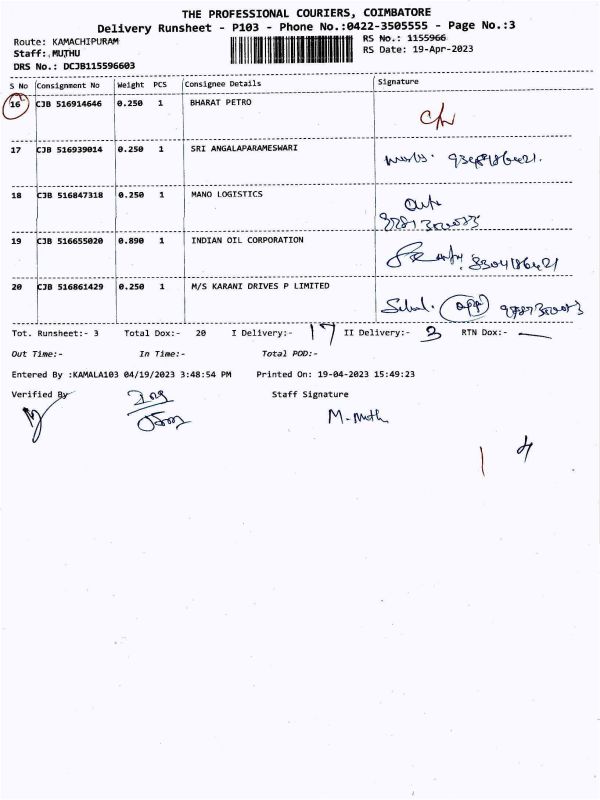 THE PROFESSIONAL COURIERS, COIMBATORE
Delivery Runsheet - P103 - Phone No.:0422-3505555 - Page No.:3
Route: KAMACHIPURAM
RS No.: 1155966
Staff: MUTHU
RS Date: 19-Apr-2023
DRS No.: DCJB115596603
S No Consignment No Weight PCS Consignee Details Signature
16 CJB 516914646 0.250 1 BHARAT PETRO
17 CJB 516939014 0.250 1 SRI ANGALAPARAMESWARI
18 CJB 516847318 0.250 1 MANO LOGISTICS
19 CJB 516655020 0.890 1 INDIAN OIL CORPORATION
20 CJB 516861429 0.250 1 M/S KARANI DRIVES P LIMITED
Tot. Runsheet:- 3 Total Dox:- 20 I Delivery:- 17 II Delivery:- 3 RTN Dox:- —
Out Time:- In Time:- Total POD:-
Entered By :KAMALA103 04/19/2023 3:48:54 PM Printed On: 19-04-2023 15:49:23
Verified By Staff Signature
M. Muth